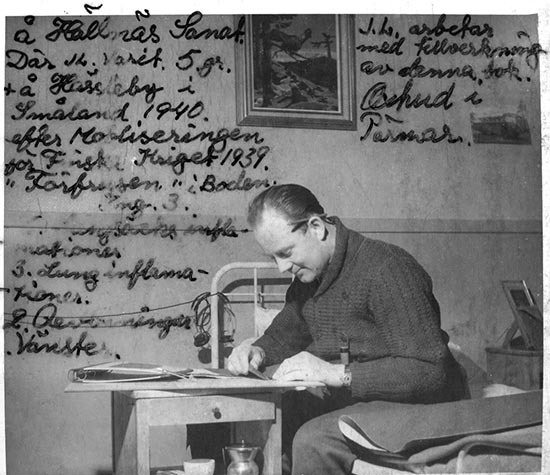 å Hällnäs Sanat.
Där J.L. varit. 5 gr.
+ å Hässleby i
Småland 1940.
efter Mobiliseringen
för Finska Kriget 1939.
"Förfrusen" i Boden.
Ing. 3.
infla-
mationer
3. Lunginflama-
tioner.
2.
Vänster.
J.L. arbetar
med tillverkning
av denna bok.
i
Pärmar.